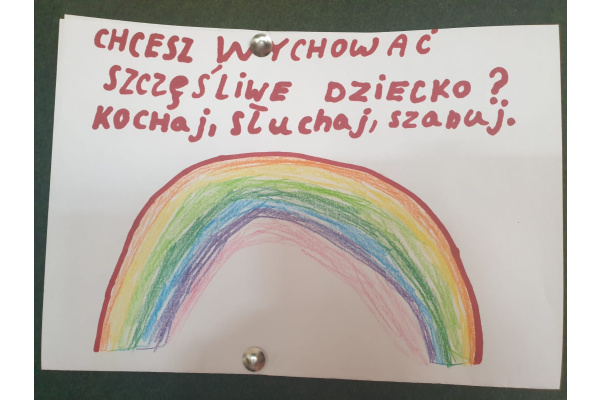 CHCESZ WYCHOWAĆ
SZCZĘŚLIWE DZIECKO?
KOCHAJ, SŁUCHAJ, SZANUJ.